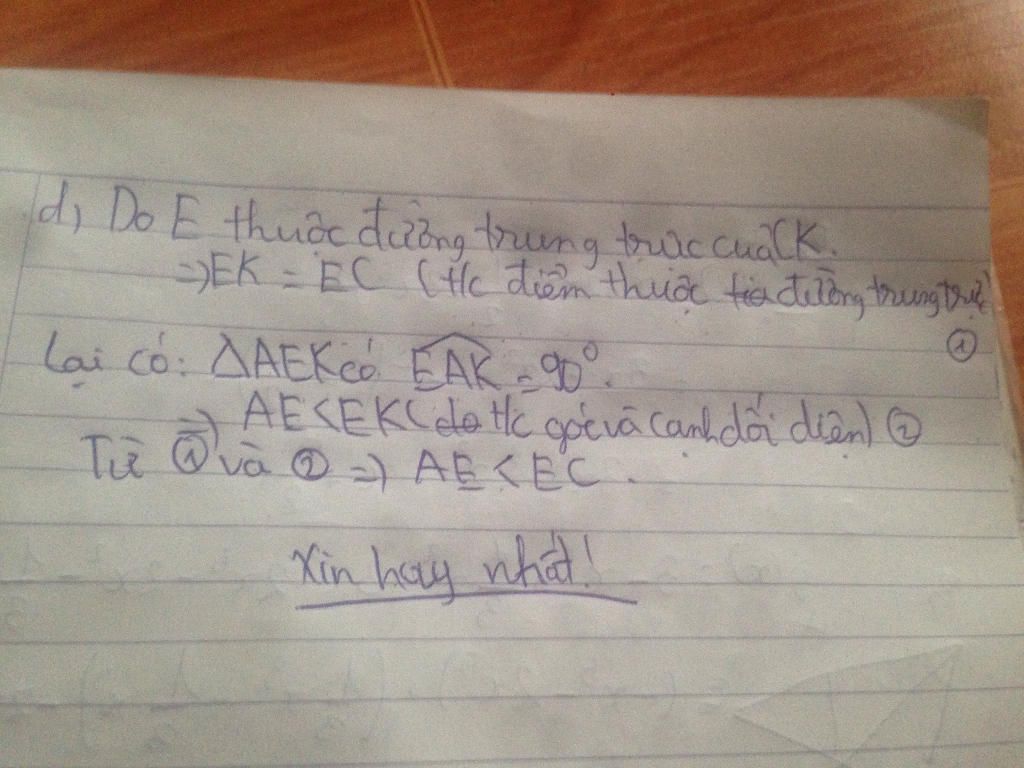 d, Do E thuộc đường trung trực của CK.
=> EK = EC (t/c điểm thuộc tia đường trung trực)
①
Lại có: ΔAEK có EAK = 90°.
=> AE < EK ( do t/c góc và cạnh đối diện) ②
Từ ① và ② => AE < EC.
Xin hay nhất!